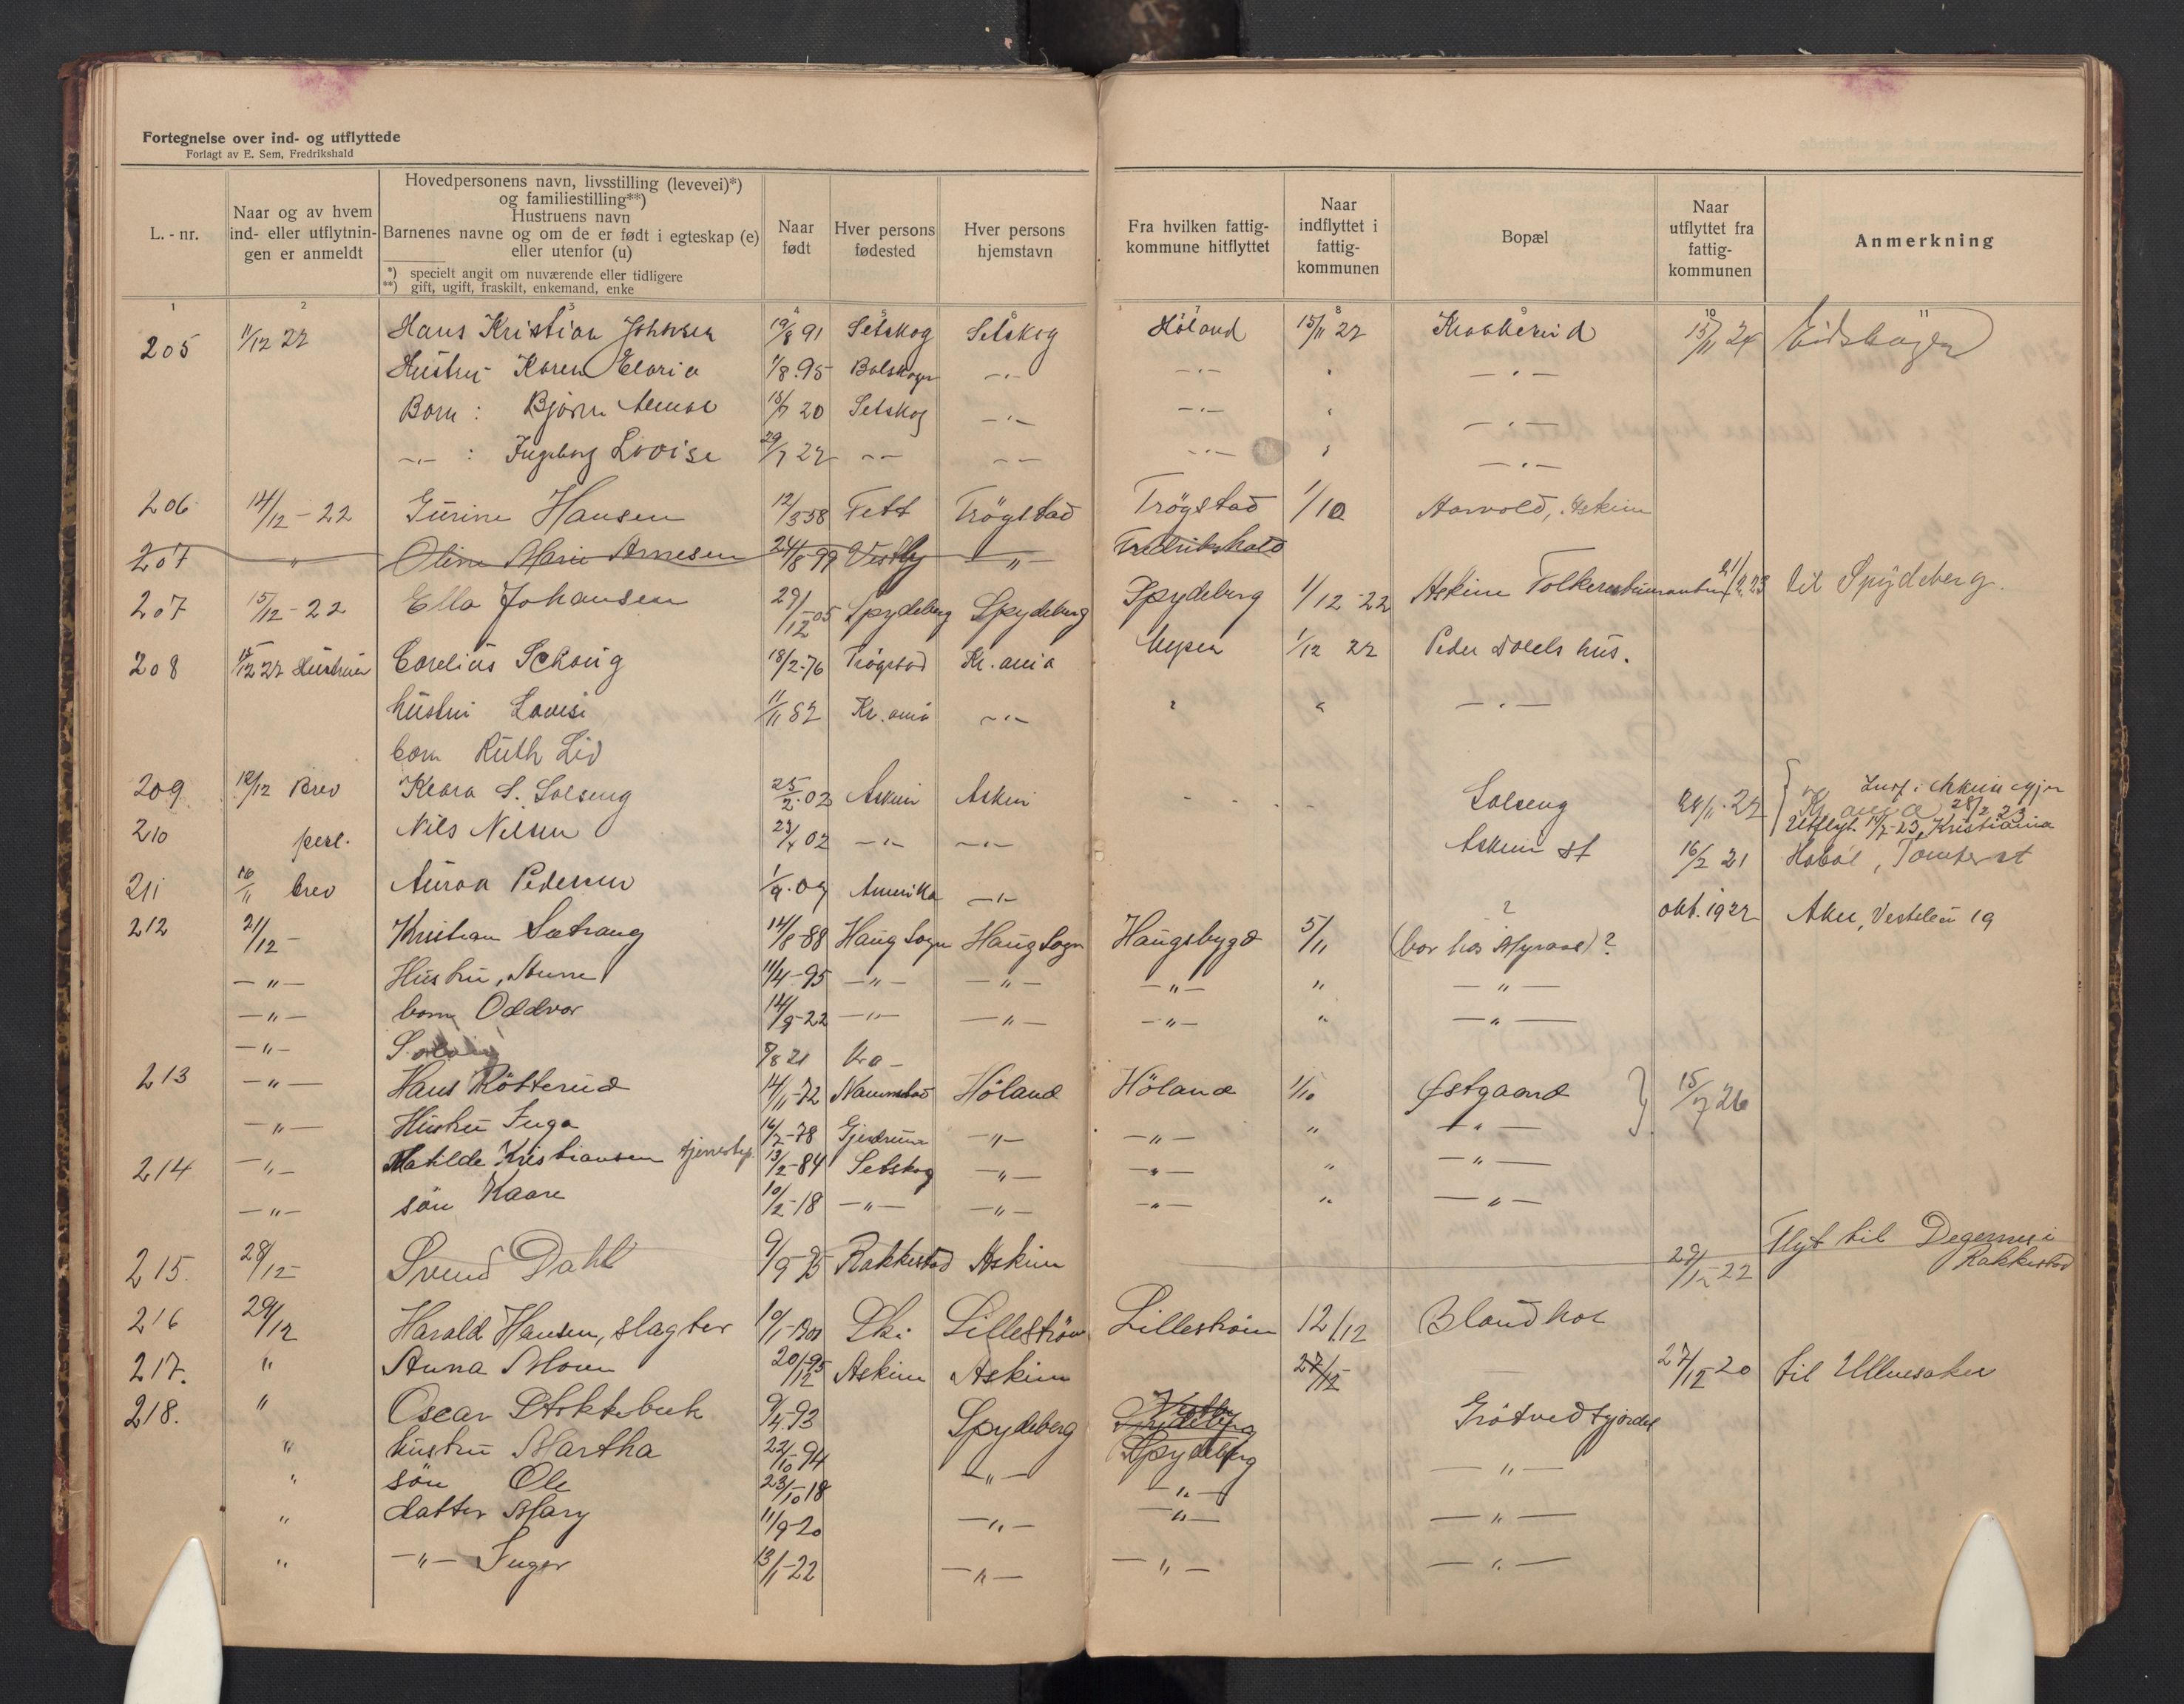 Fortegnelse over ind- og utflyttede
Forlagt av E. Sem, Fredrikshald
L. - nr.
Naar og av hvem
ind- eller utflytnin-
gen er anmeldt
Hovedpersonens navn, livsstilling (levevei)*)
og familiestilling**)
Hustruens navn
Barnenes navne og om de er født i egteskap (e)
eller utenfor (u)
*) specielt angit om nuværende eller tidligere
**) gift, ugift, fraskilt, enkemand, enke
Naar
født
Hver persons
fødested
Hver persons
hjemstavn
Fra hvilken fattig-
kommune hitflyttet
Naar
indflyttet i
fattig-
kommunen
Bopæl
Naar
utflyttet fra
fattig-
kommunen
Anmerkning
1 2 3 4 5 6 7 8 9 10 11
205 11/12 22 Hans Kristian Johnsen 19/8 91 Setskog Setskog Höland 15/11 22 15/11 24
Hustru Karen 1/8.95 -"- -"- " -"-
Barn : Bjørn 15/7 20 Setskog -"- -"- " -"-
-"- : Ingeborg Lovise 29/7 22 -"- -"- -"- " -"-
206 14/12 - 22 Gurine Hansen 12/3 58 Fett Trögstad Trögstad 1/10 Aarvold, Askim
207 " Oline Marie Arnesen 24/8-99 Vestby -"- Fredrikshald
207 15/12 - 22 Ella Johansen 29/12 05 Spydeberg Spydeberg Spydeberg 1/12-22 Askim til Spydeberg.
208 15/12 22 Hustruen Corelius 18/2-76 Trögstad Kr.ania Mysen 1/12 22 Peder hus.
hustru Lovise 11/11 82 Kr.ania -"- " " -"-
barn Ruth Liv
209 12/12 Brev Klara S. Solseng 25/2.02 Askim Askim Solseng Kr.ania 28/2 23
210 pers. Nils Nilsen 02 -"- -"- Askim st 16/2 21 Utflyt. Kristiania
Haböl, Tomter st
211 16/11 brev Pedersen 1/9.07 Amerika -"- ? okt. 1922 Aker, 19
212 21/12 - Kristian Sætrang 14/8-88 Haug Sogn Haug Sogn Haugsbygd 5/11 (bor hos )?
-"- Hustru, 11/4-95 -"- -"- -"- " -"-
-"- barn Oddvar 14/9-22 -"- -"- -"- " -"-
-"- 8/8 21
213 -"- Hans Rötterud 14/11-72 Höland Höland 1/10 Østgaard 15/7 26
-"- Hustru Inga 16/2-78 Gjerdrum -"- -"- " -"-
214 -"- Matilde Kristiansen 13/2-84 Setskog -"- -"- " -"-
-"- sön Kaare 10/2-18 -"- -"- -"- " -"-
215. 28/12 Svend Dahl 9/9-95 Rakkestad Askim 29/12 22 Flyt til Degernes i
Rakkestad
216 29/12 Harald Hansen, slagter Ski Lilleström Lilleström 12/12
217. " Anna Moen 20/12-95 Askim Askim 27/12 27/12 20 til Ullensaker
218. " Oscar 9/4-93 Spydeberg Spydeberg
Spydeberg
" hustru Martha 22/10-94 -"- -"-
" sön Ole 23/10-18 -"- -"-
" datter Mary 11/9-20 -"- -"- -"-
" -"- Inger 13/1-22 -"- -"- -"-